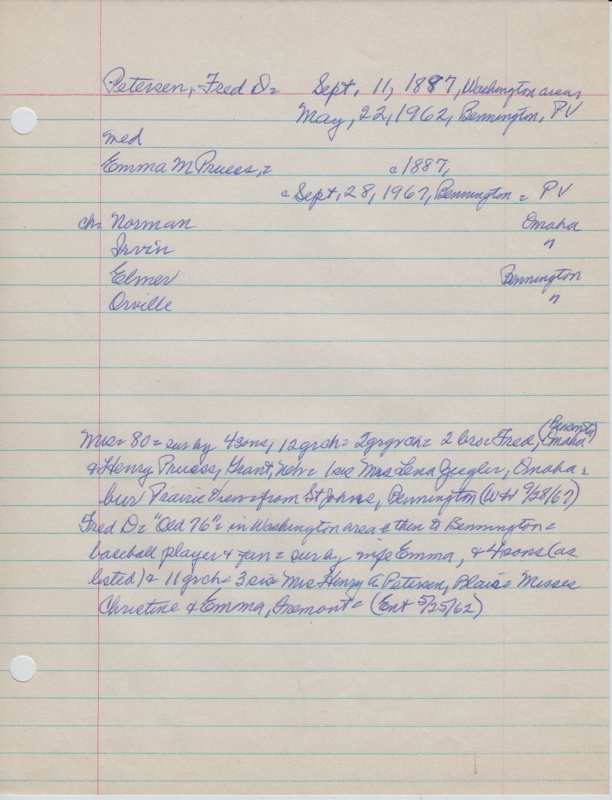 Petersen, Fred D = Sept. 11, 1887, Washington area,
May, 22, 1962, Bennington, PV
med
Emma M Pruess, = c 1887,
c Sept, 28, 1967, Bennington = PV
ch = Norman Omaha
Irvin "
Elmer Bennington
Orville "
Mrs = 80 = sur by 4 sons, 12 grch = 2 grgrch = 2 bro = Fred, Omaha
& Henry Pruess, Grant, Neb = 1 sis Mrs Lena Omaha =
bur Prairie View = from St Johns, Bennington (W H 9/28/67)
Fred D = "Old 76" = in Washington area & then to Bennington =
baseball player & fan = sur by wife Emma, & 4 sons (as
listed) & 11 grch = 3 sis = Mrs Henry A Petersen, Blair = Misses
Christine & Emma, Fremont = (Ent 5/25/62)